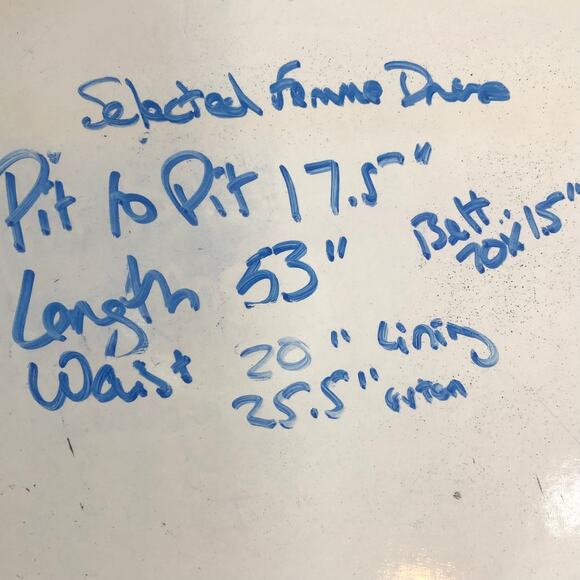 Selected Femme Dress
Pit to Pit 17.5"
Length 53"
Belt:
70x1.5"
Waist 20" Lining
25.5"